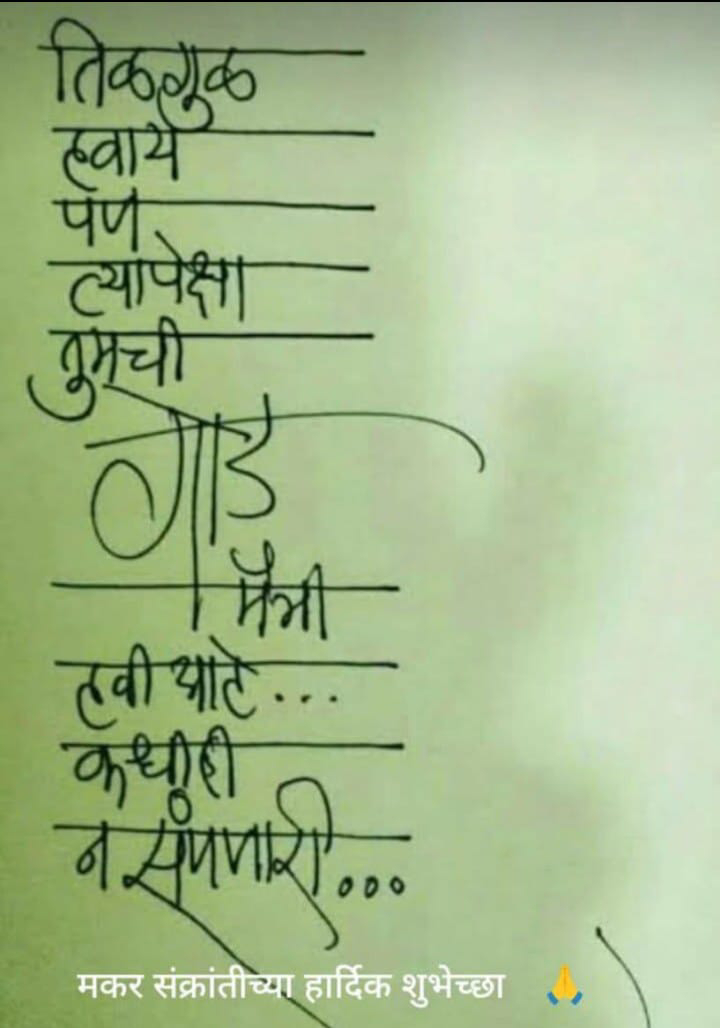 तिळगुळ
हवाय
पण
त्यापेक्षा
तुमची
गोड
मैत्री
हवी आहे...
कधीही
न संपणारी...
मकर संक्रांतीच्या हार्दिक शुभेच्छा 🙏